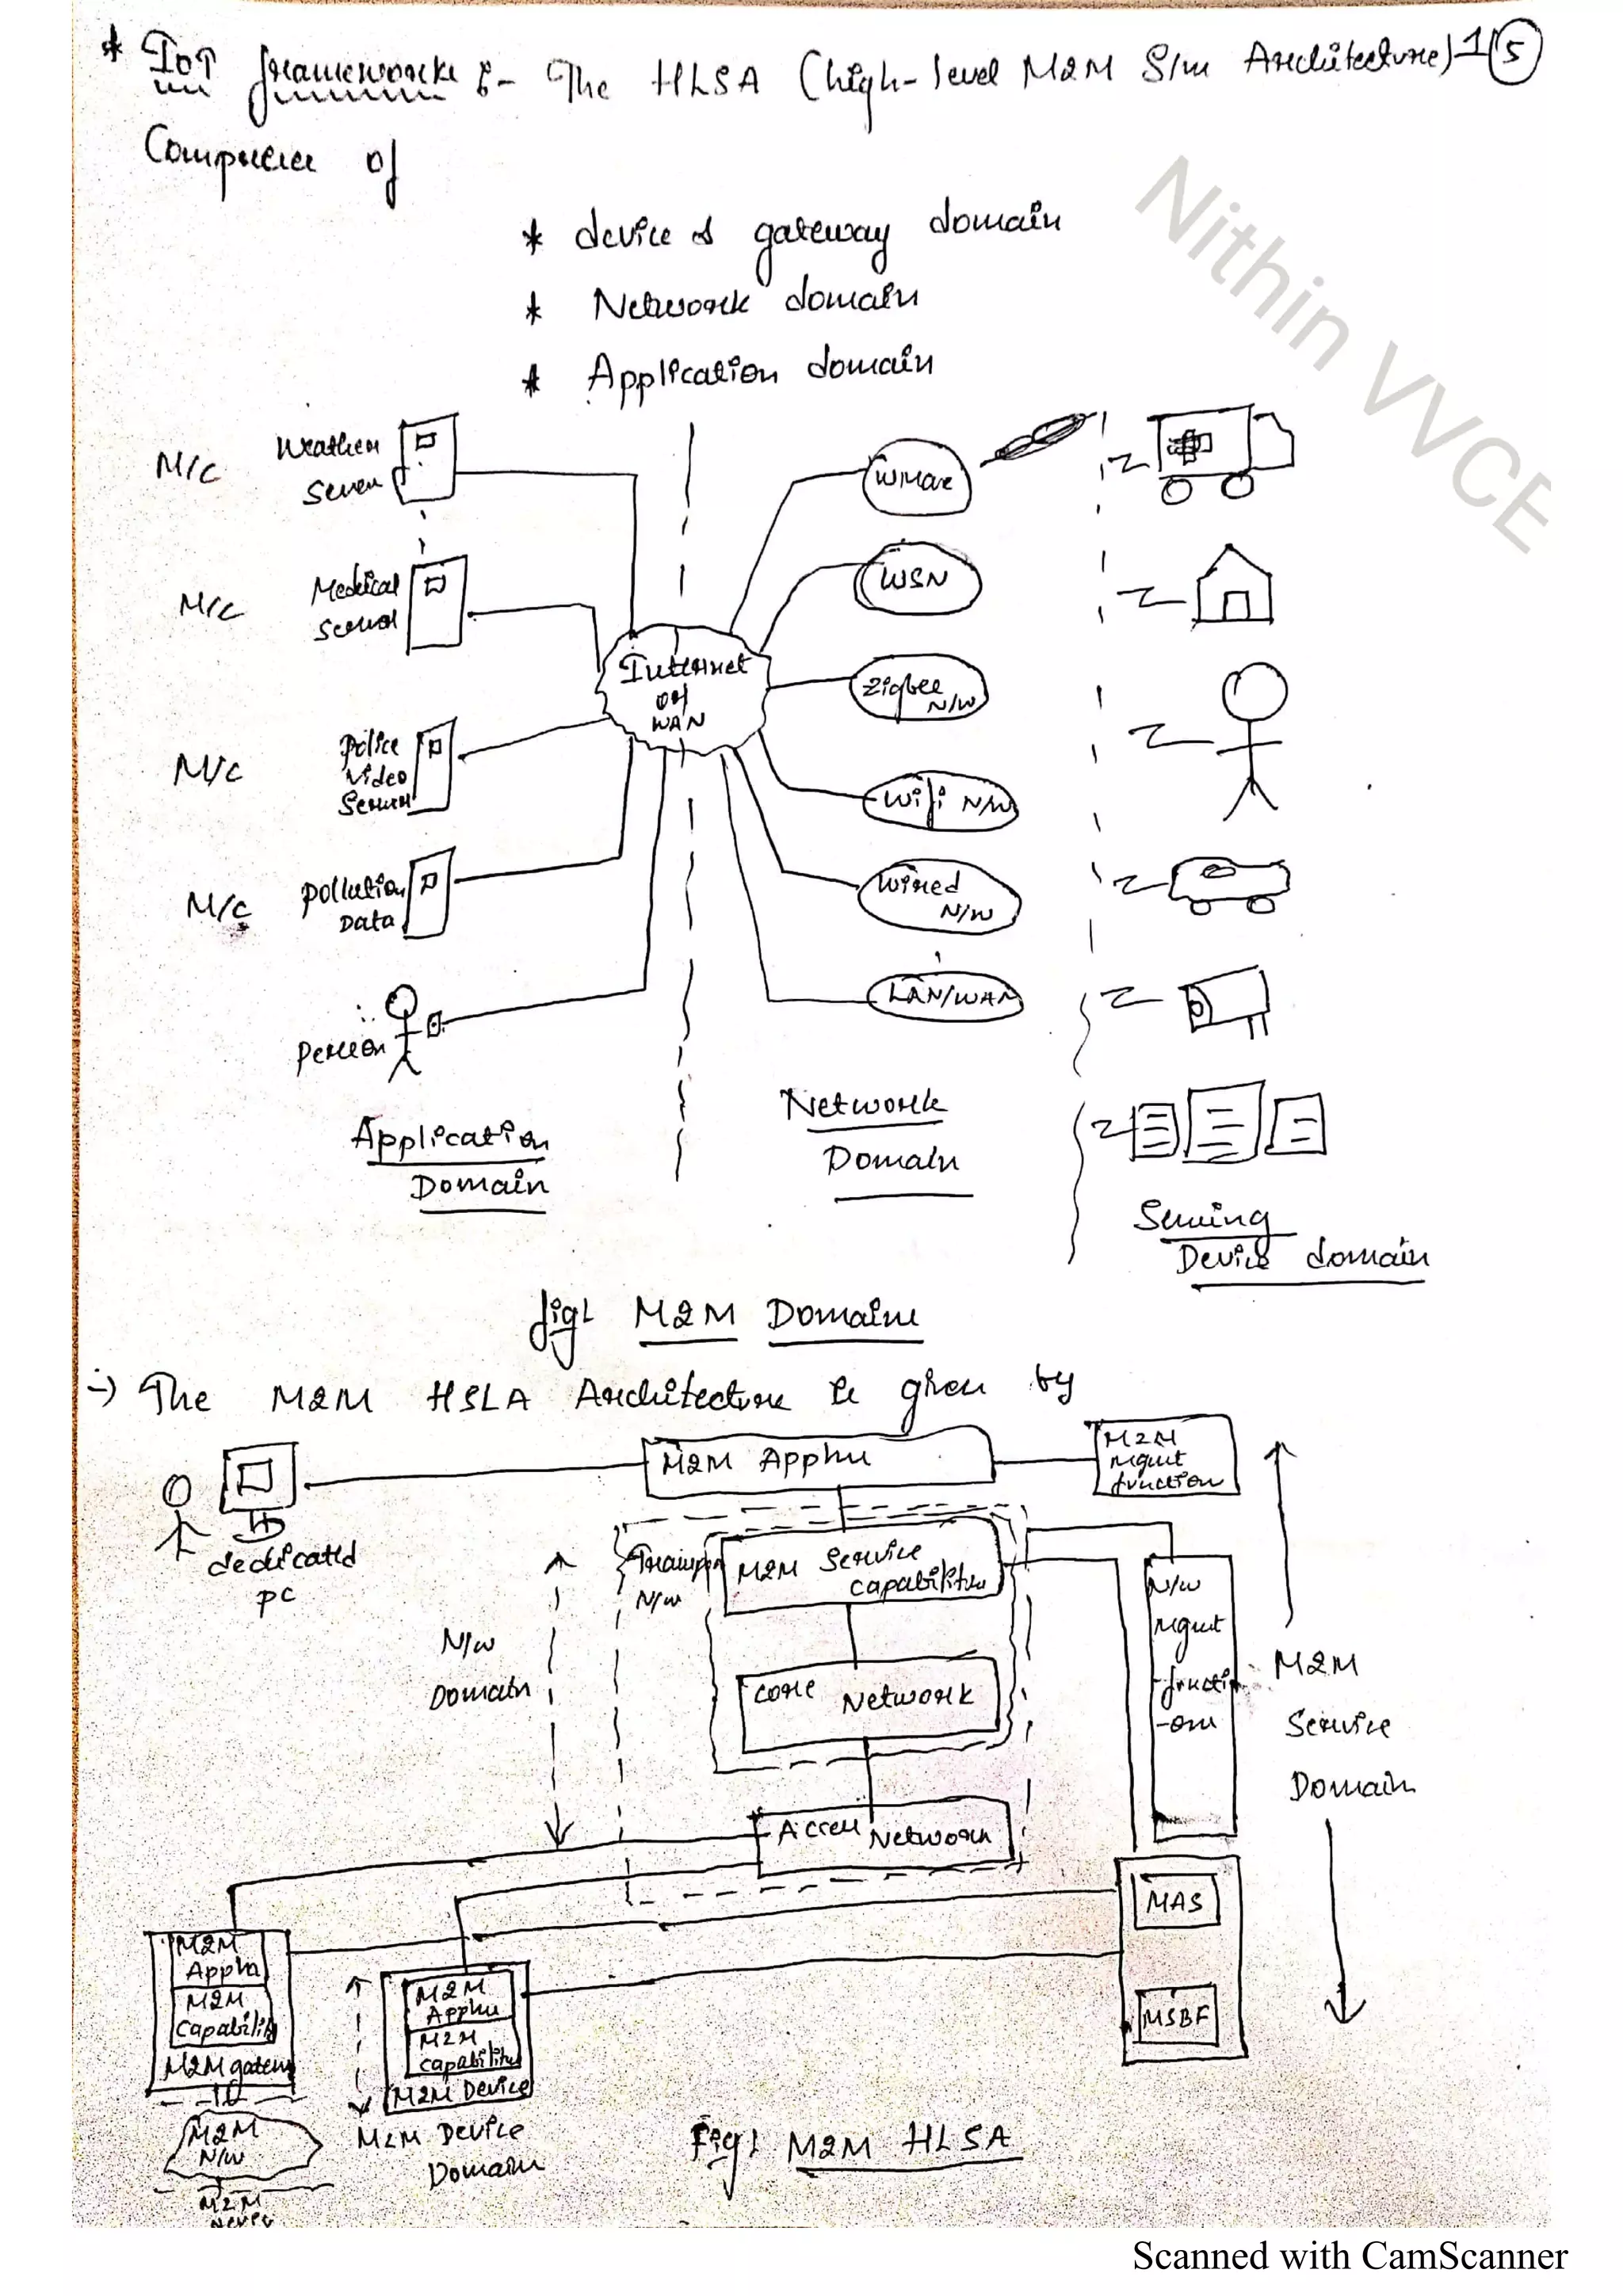 * IoT frameworks :- The HLSA (high-level M2M S/m Architecture) 15
Comprises of
* device & gateway domain
* Network domain
* Application domain
Nithin VVCE
M/C Weather Server
M/C Medical Server
M/C Police Video Server
M/C Pollution Data
Person
Internet or WAN
WiMax
WSN
Zigbee N/W
Wifi N/W
Wired N/W
LAN/WAN
Application Domain
Network Domain
Sensing Device domain
fig1 M2M Domains
-> The M2M HSLA Architecture is given by
dedicated PC
M2M Appln
M2M Mgmt function
Transport N/w
M2M Service capabilities
N/w Domain
Core Network
Access Network
N/w Mgmt -functi -ons
M2M Service Domain
MAS
MSBF
M2M Appln
M2M Capability
M2M gateway
M2M N/W
M2M Device
M2M Appln
M2M capabilities
M2M Device
M2M Device Domain
Fig1 M2M HLSA
Scanned with CamScanner